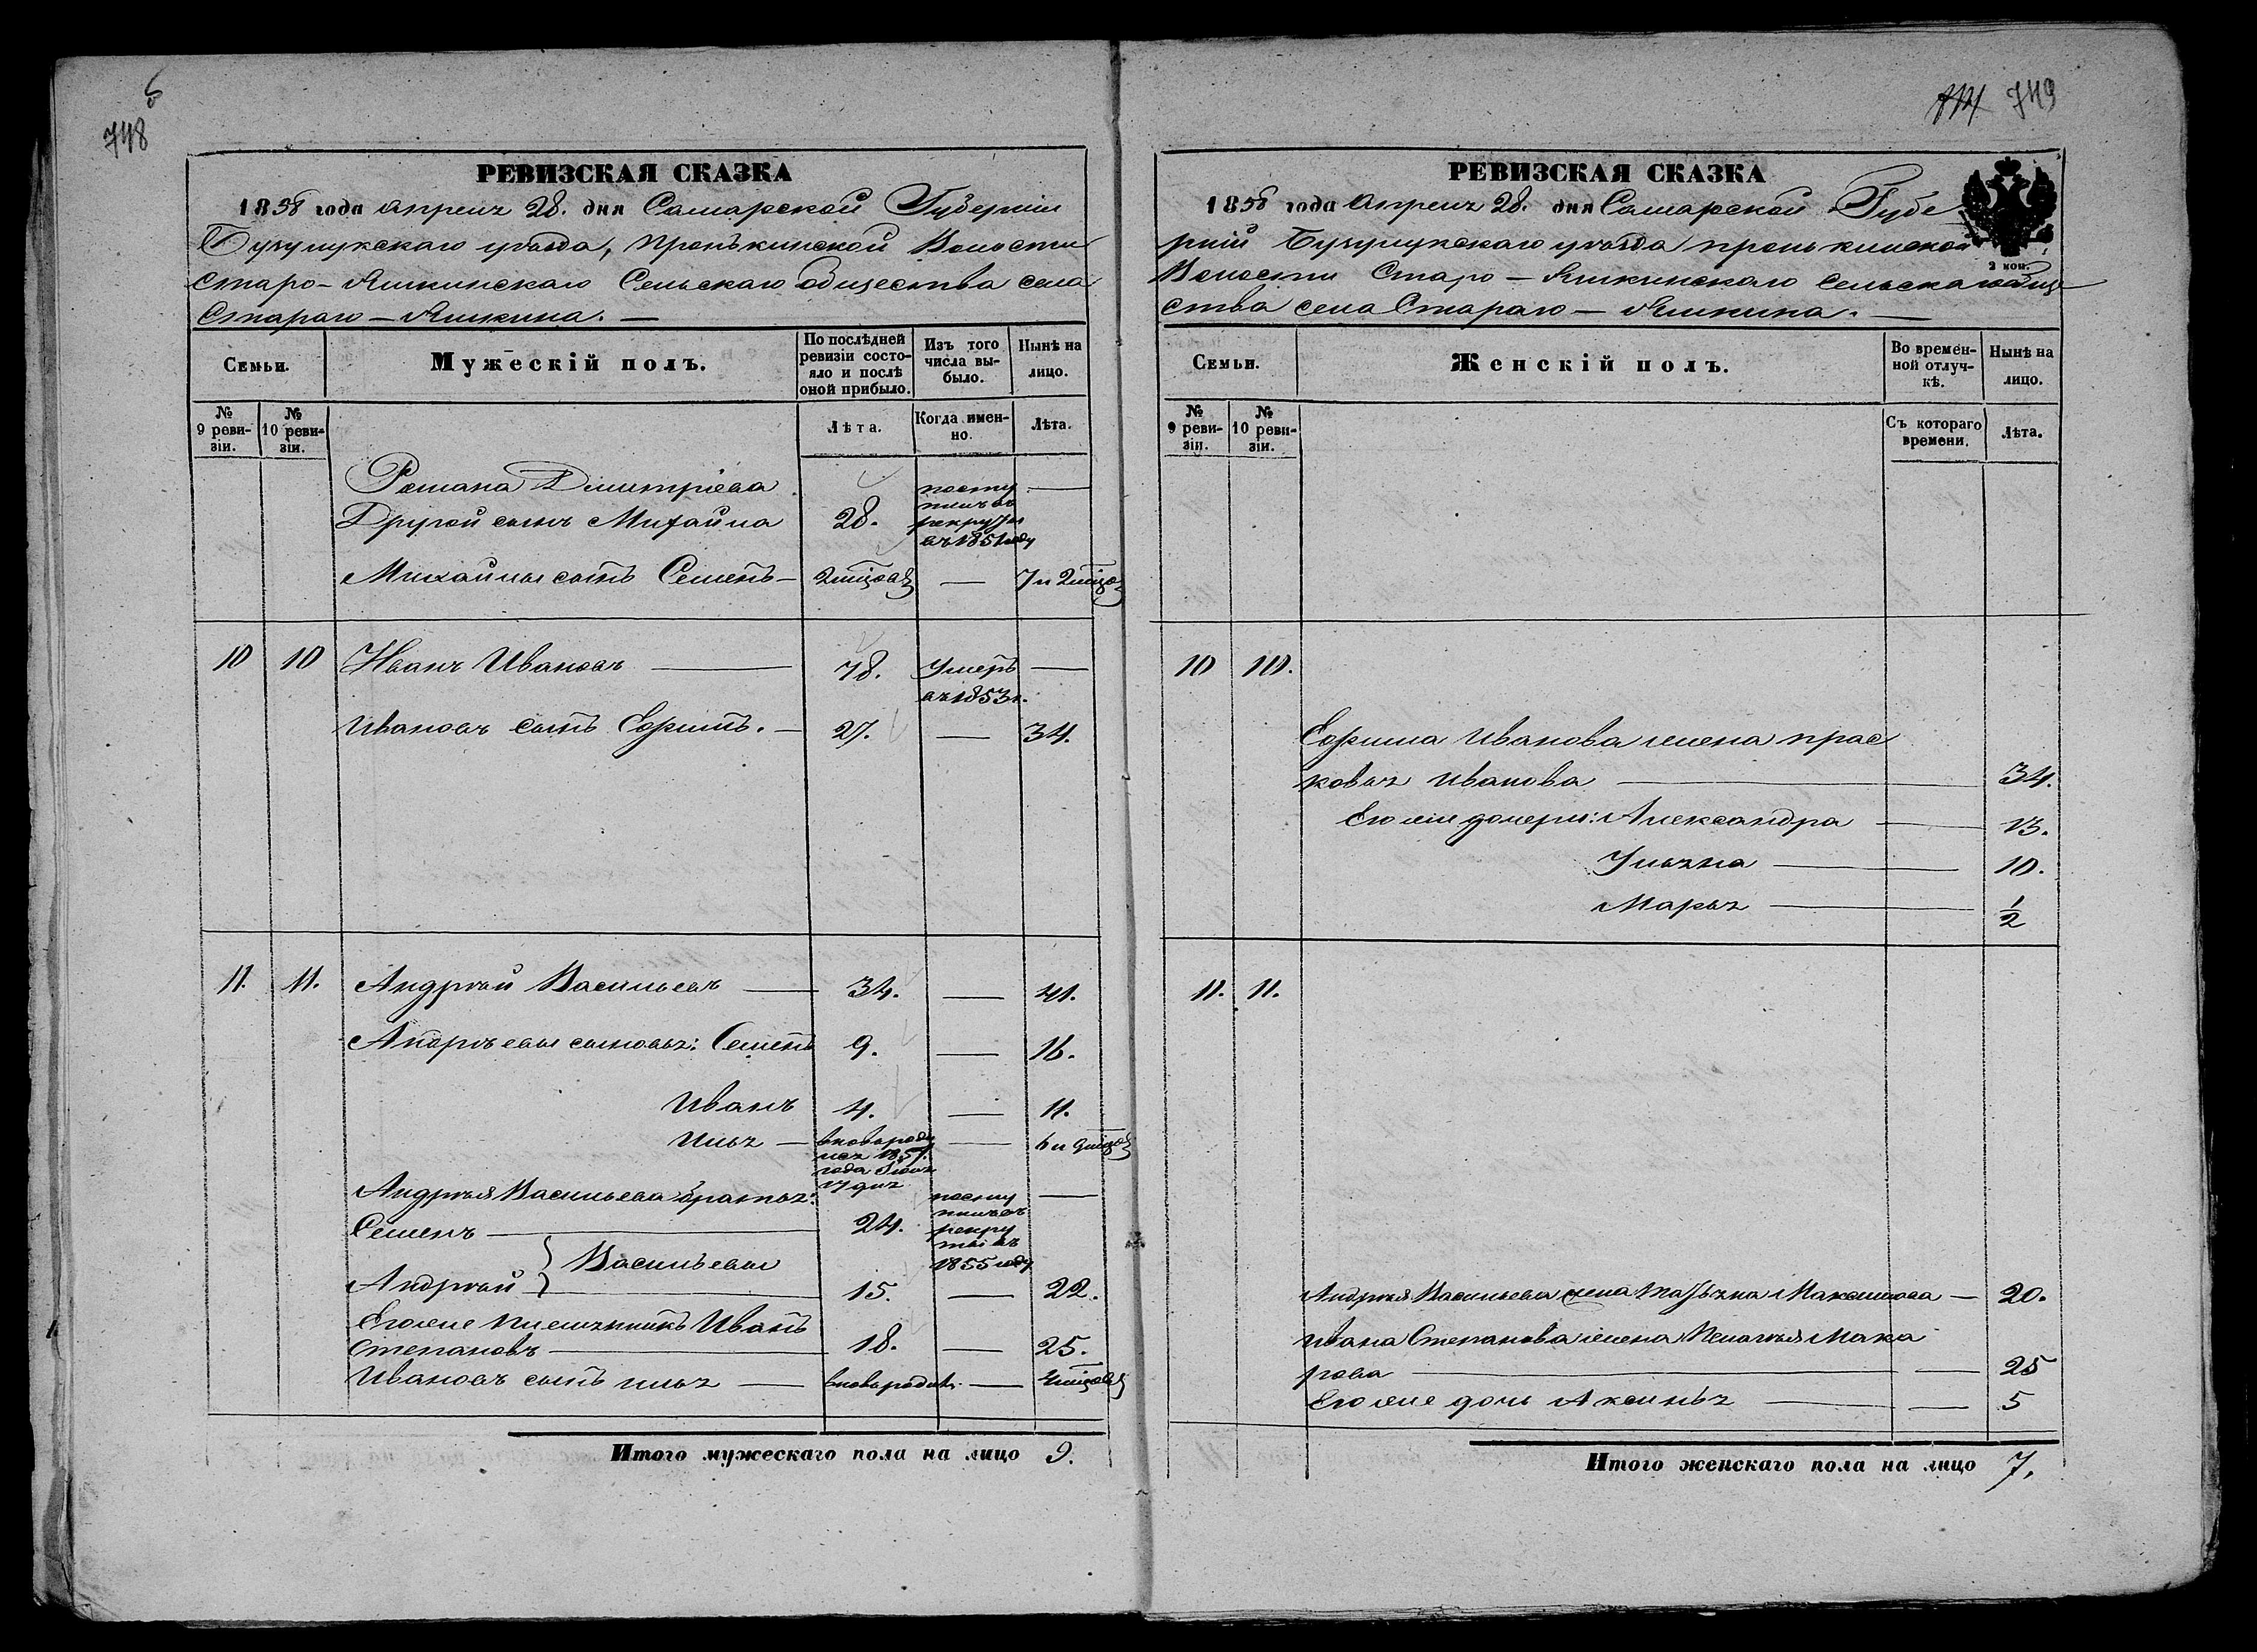 6
748
РЕВИЗСКАЯ СКАЗКА
1858 года апреля 28. дня Самарской Губерніи
Бузулукскаго уѣзда, Пронькинской Волости
Старо-Яшкинскаго Сельскаго общества села
Стараго-Яшкина.
Семьи.
Мужескій полъ.
По послѣдней ревизіи состояло и послѣ оной прибыло.
Изъ того числа выбыло.
Нынѣ на лицо.
№ 9 ревизіи.
№ 10 ревизіи.
Лѣта.
Когда именно.
Лѣта.
Романа Дмитріева
Другой сынъ Михайла 28. поступилъ въ рекруты въ 1851 году —
Михайлы сынъ Семенъ — 2 мѣсяцев — 7 и 2 мѣсяц
10 10 Иванъ Ивановъ — 78. Умеръ въ 1853 г. —
Ивановъ сынъ Ефимъ. — 27. — 34.
11. 11. Андрѣй Васильевъ — 34. — 41.
Андрѣевы сыновья: Семенъ 9. — 16.
Иванъ 4. — 11.
Илья — вновь родился 1851. года Июля 17 дня — 6 и 9 мѣсяц
Андрѣя Васильева братья:
Семенъ — 24. поступилъ въ рекруты въ 1855 году —
} Васильевы
Андрѣй — 15. — 22.
Его же племянникъ Иванъ
Степановъ — 18. — 25.
Ивановъ сынъ Илья — вновь родив. — 4 мѣсяцев
Итого мужескаго пола на лицо 9.
749
РЕВИЗСКАЯ СКАЗКА
1858 года Апреля 28. дня Самарской Губе
рніи Бузулукскаго уѣзда Пронькинской
Волости Старо-Яшкинскаго Сельскаго обще
ства села Стараго-Яшкина. —
2 коп.
Семьи.
Женскій полъ.
Во временной отлучкѣ.
Нынѣ на лицо.
№ 9 ревизіи.
№ 10 ревизіи.
Съ котораго времени.
Лѣта.
10 10.
Ефима Иванова жена Прас
ковья Иванова — 34.
Его же дочери: Александра — 13.
Ульяна — 10.
Марья — 1/2
11. 11.
Андрѣя Васильева жена Татьяна Максимова — 20.
Ивана Степанова жена Пелагѣя Мака
рова — 25
Его же дочь Аксинья — 5
Итого женскаго пола на лицо 7.